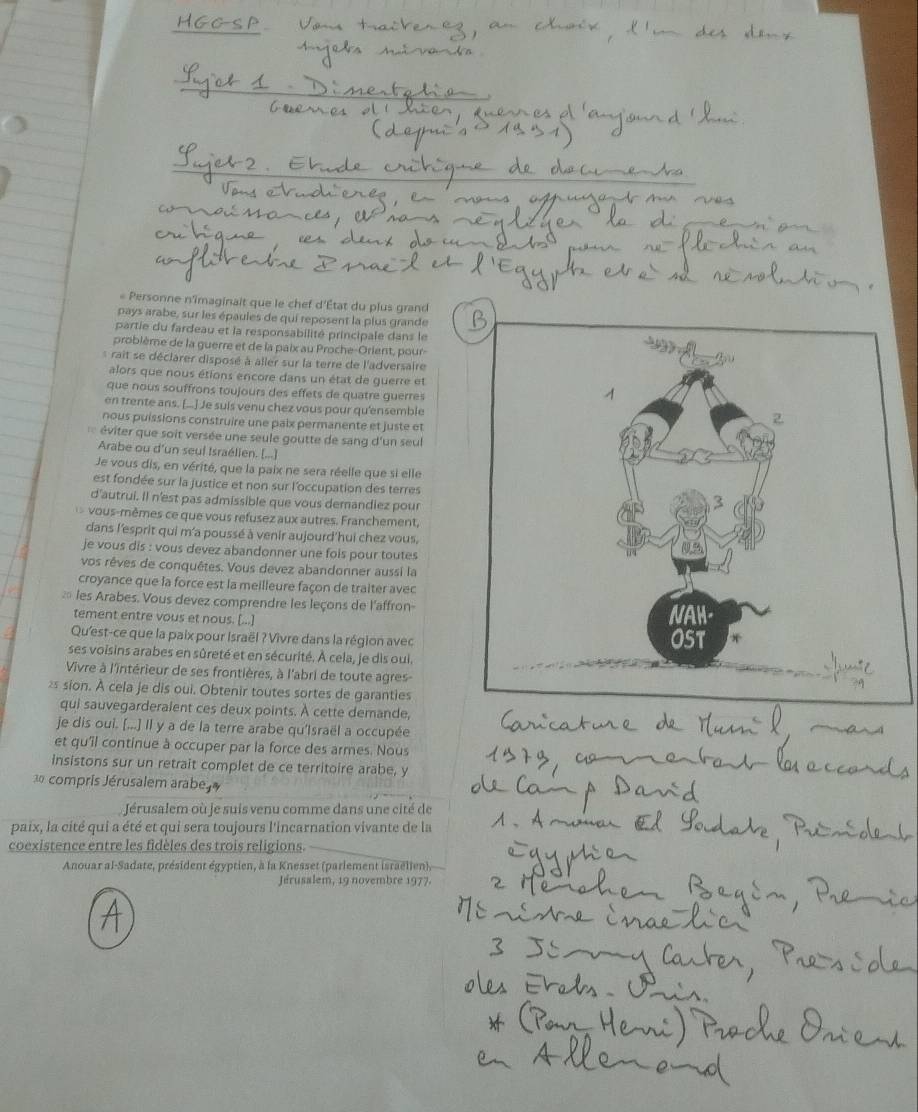 HGGSP. Vous traiterez, au choix, l'un des deux
sujets suivants.
Sujet 1. Dissertation
Guerres d'hier, guerres d'aujourd'hui.
(depuis 1991)
Sujet 2. Etude critique de documents
Vous étudierez, en vous appuyant sur vos
connaissances, et sans négliger la dimension
critique, ces deux documents pour réfléchir au
conflit entre Israël et l'Egypte et à sa résolution.
« Personne n'imaginait que le chef d'État du plus grand
pays arabe, sur les épaules de qui reposent la plus grande
partie du fardeau et la responsabilité principale dans le
problème de la guerre et de la paix au Proche-Orient, pour-
5 rait se déclarer disposé à aller sur la terre de l'adversaire
alors que nous étions encore dans un état de guerre et
que nous souffrons toujours des effets de quatre guerres
en trente ans. [...] Je suis venu chez vous pour qu'ensemble
nous puissions construire une paix permanente et juste et
10 éviter que soit versée une seule goutte de sang d'un seul
Arabe ou d'un seul Israélien. [...]
Je vous dis, en vérité, que la paix ne sera réelle que si elle
est fondée sur la justice et non sur l'occupation des terres
d'autrui. Il n'est pas admissible que vous demandiez pour
15 vous-mêmes ce que vous refusez aux autres. Franchement,
dans l'esprit qui m'a poussé à venir aujourd'hui chez vous,
je vous dis : vous devez abandonner une fois pour toutes
vos rêves de conquêtes. Vous devez abandonner aussi la
croyance que la force est la meilleure façon de traiter avec
20 les Arabes. Vous devez comprendre les leçons de l'affron-
tement entre vous et nous. [...]
Qu'est-ce que la paix pour Israël ? Vivre dans la région avec
ses voisins arabes en sûreté et en sécurité. À cela, je dis oui.
Vivre à l'intérieur de ses frontières, à l'abri de toute agres-
25 sion. À cela je dis oui. Obtenir toutes sortes de garanties
qui sauvegarderaient ces deux points. À cette demande,
je dis oui. [...] Il y a de la terre arabe qu'Israël a occupée
et qu'il continue à occuper par la force des armes. Nous
insistons sur un retrait complet de ce territoire arabe, y
30 compris Jérusalem arabe,
Jérusalem où je suis venu comme dans une cité de
paix, la cité qui a été et qui sera toujours l'incarnation vivante de la
coexistence entre les fidèles des trois religions.
Anouar al-Sadate, président égyptien, à la Knesset (parlement israélien),
Jérusalem, 19 novembre 1977.
A
B
1
2
3
U.S.
NAH-
OST *
79
Caricature de Mumil, mars
1979, commentant les accords
de Camp David
1. Anouar El Sadate, Président
égyptien
2 Menahem Begin, Premie
Ministre israélien
3 Jimmy Carter, Préside
des Etats-Unis.
* (Pour Henri) Proche Orient
en Allemand